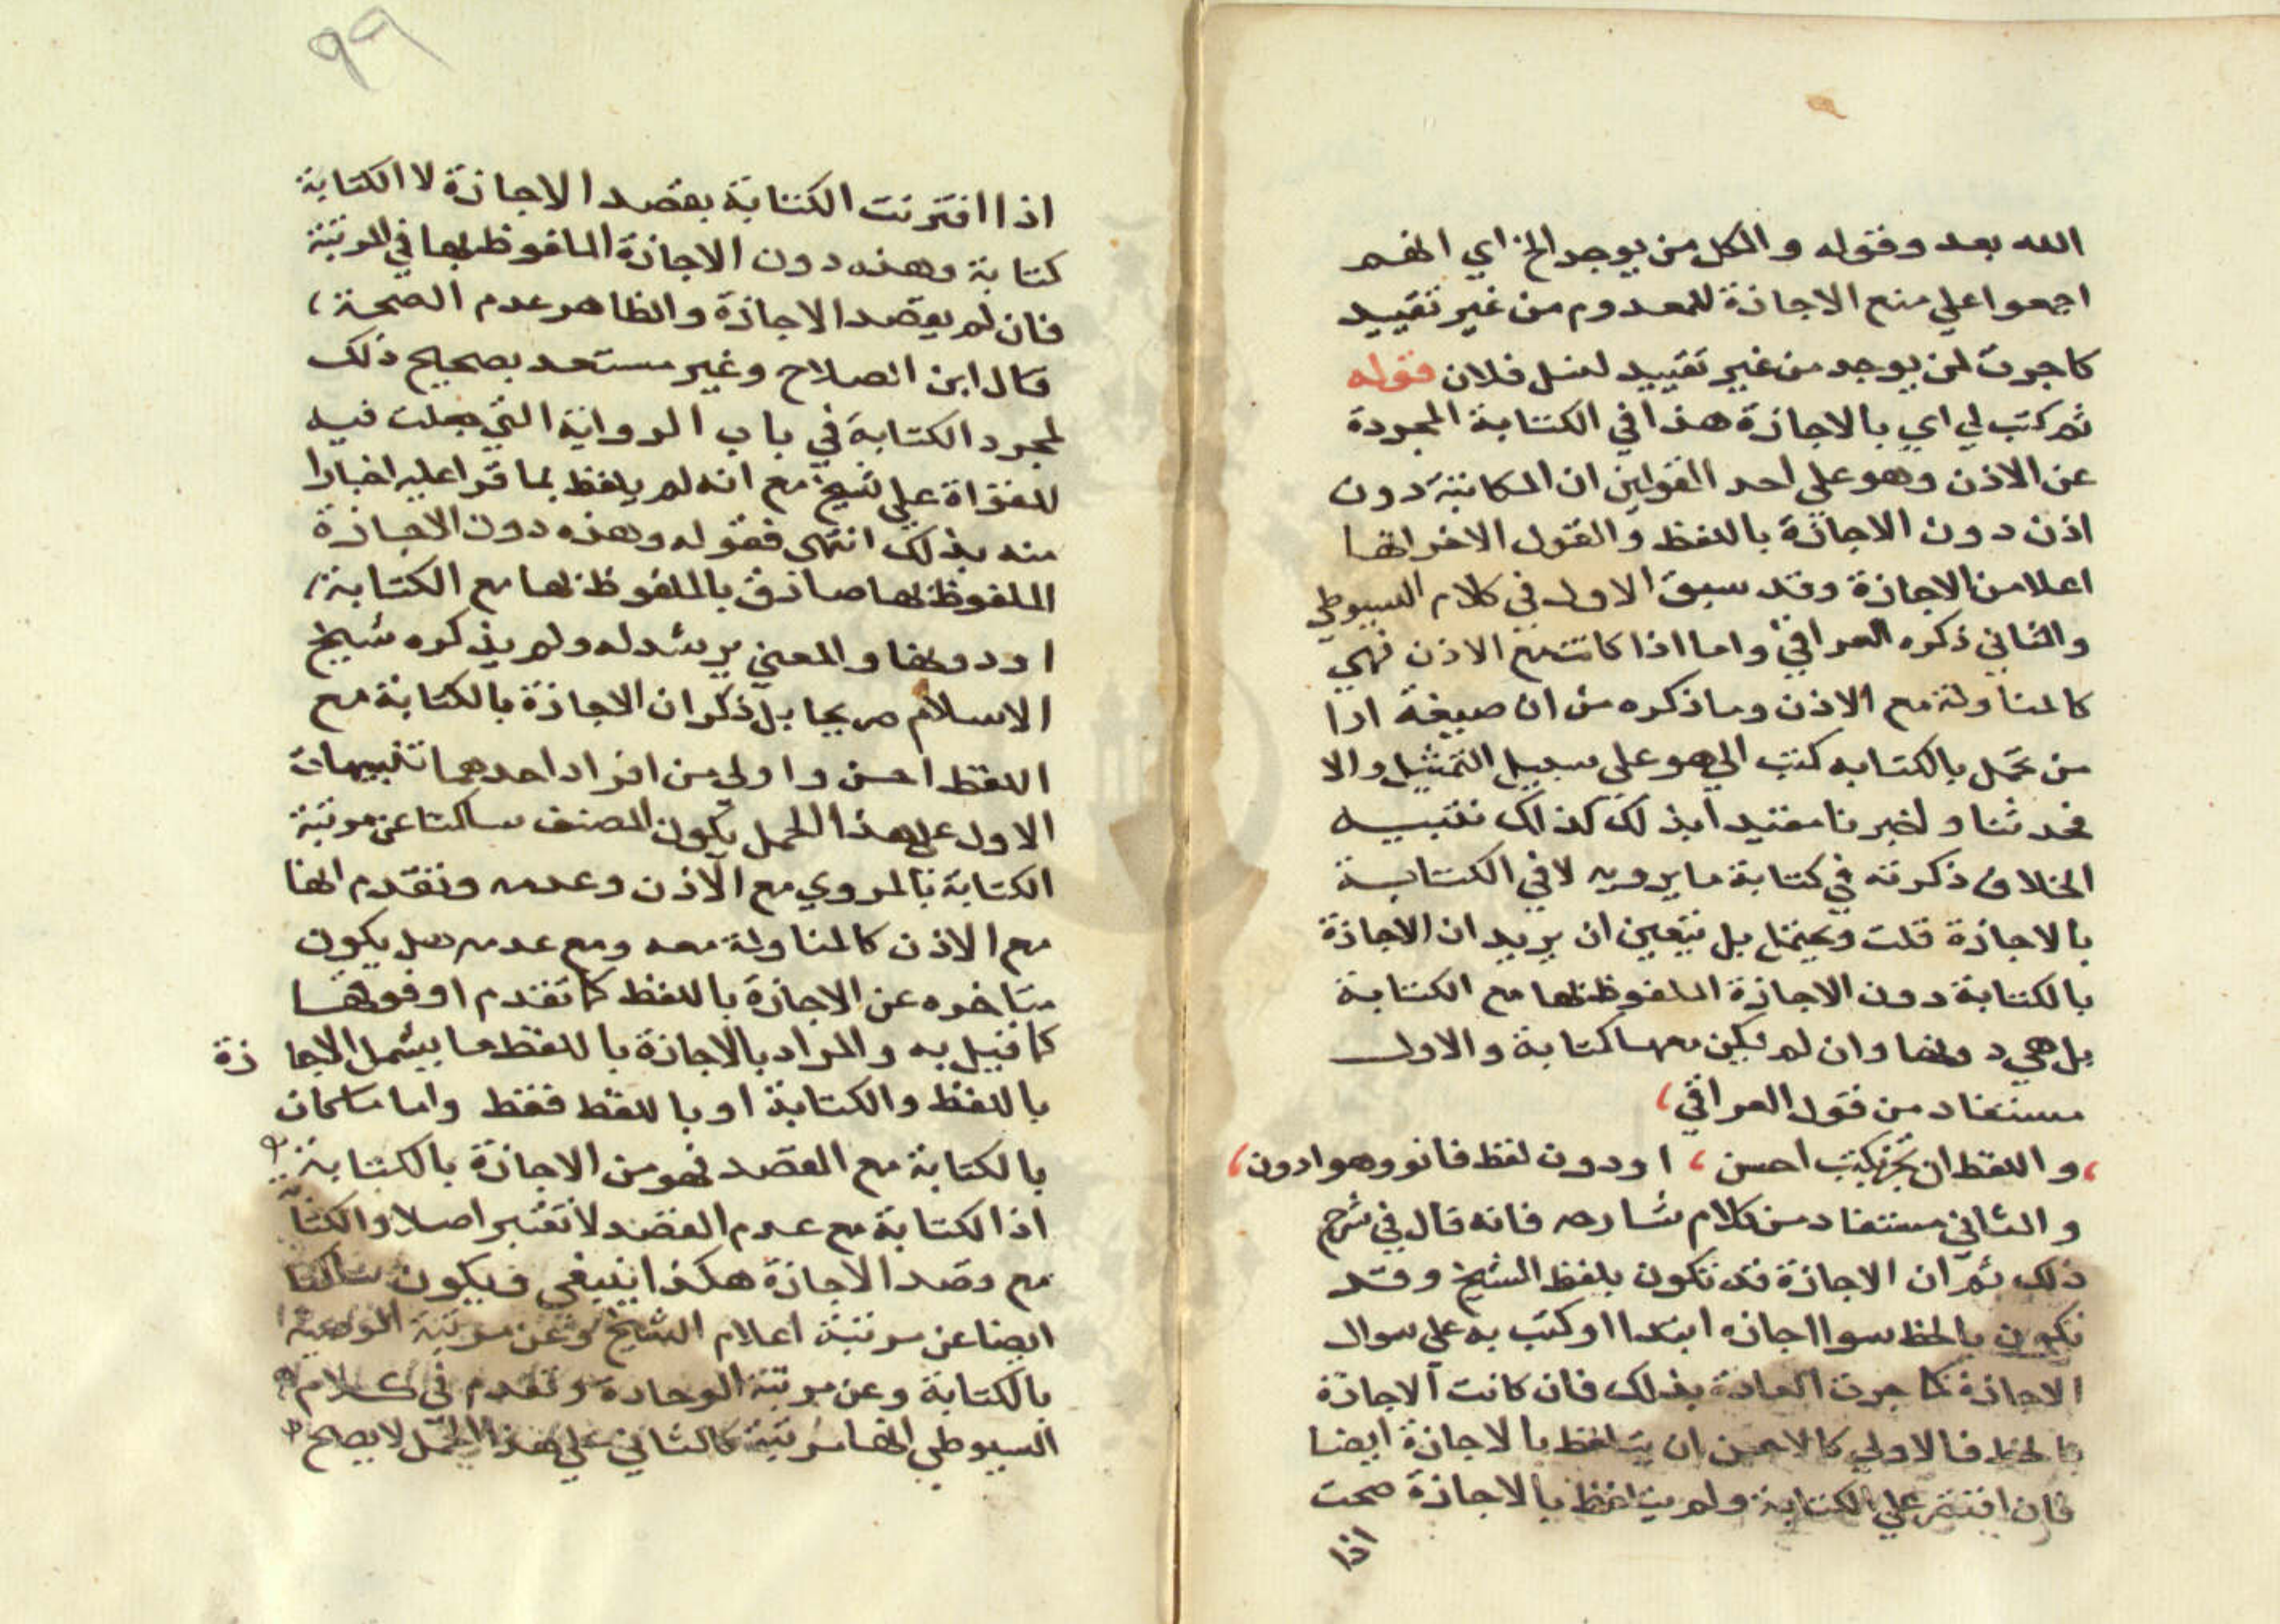 الله بعد وقوله والكل من يوجد الخ اي انهم
اجمعوا علي منع الاجازة للمعدوم من غير تقييد
كاجرت لمن يوجد من غير تقييد لنسل فلان قوله
ثم كتب لي اي بالاجازة هذا في الكتابة المجردة
عن الاذن وهو علي احد القولين ان المكاتبة دون
اذن دون الاجازة باللفظ والقول الاخر انها
اعلا من الاجازة وقد سبق الاول في كلام السيوطي
والثاني ذكره العراقي واما اذا كانت مع الاذن فهي
كالمناولة مع الاذن وما ذكره من ان صيغة ادا
من تحمل بالكتابه كتب الي هو علي سبيل التمثيل والا
فحدثنا واخبرنا مقيدا بذلك كذلك تنبيه
الخلاف ذكرته في كتابة ما يرويه لا في الكتابة
بالاجازة قلت ويحتمل بل يتعين ان يريد ان الاجازة
بالكتابة دون الاجازة الملفوظ بها مع الكتابة
بل هي دونها وان لم يكن معها كتابة والاول
مستفاد من قول العراقي
واللفظ ان تجز بكتب احسن ، او دون لفظ فانو وهو ادون
والثاني مستفاد من كلام شارحه فانه قال في شرح
ذلك ثم ان الاجازة قد تكون بلفظ الشيخ وقد
تكون بالخط سوا اجازه ابتدا او كتب به علي سوال
الاجازة كما جرت العادة بذلك فان كانت الاجازة
بالخط فالاولي كالاحسن ان يتلفظ بالاجازة ايضا
فان اقتصر علي الكتابة ولم يتلفظ بالاجازة صحت
اذا
٩٩
اذا اقترنت الكتابة بقصد الاجازة لا الكتابة
كتابة وهذه دون الاجازة الملفوظ بها في المرتبة
فان لم يقصد الاجازة والظاهر عدم الصحة،
قال ابن الصلاح وغير مستعد بصحيح ذلك
لمجرد الكتابة في باب الرواية التي جعلت فيه
للقراة علي شيخ مع انه لم يلفظ بما قرا عليه اخبارا
منه بذلك انتهي فقوله وهذه دون الاجازة
الملفوظ بها صادق بالملفوظ بها مع الكتابة
او دونها والمعني يرشد له ولم يذكره شيخ
الاسلام صريحا بل ذكر ان الاجازة بالكتابة مع
اللفظ احسن واولي من افراد احدهما تنبيهات
الاول علي هذا الحمل يكون المصنف ساكتا عن مرتبة
الكتابة بالمروي مع الاذن وعدمه وتقدم انها
مع الاذن كالمناولة معه ومع عدمه هل يكون
متاخره عن الاجازة باللفظ كما تقدم او فوقها
كما قيل به والمراد بالاجازة باللفظ ما يشمل الاجازة
باللفظ والكتابة او باللفظ فقط واما ما كان
بالكتابة مع القصد فهو من الاجازة بالكتابة
اذ الكتابة مع عدم القصد لا تعتبر اصلا والكتا
مع قصد الاجازة هكذا ينبغي فيكون ساكتا
ايضا عن مرتبة اعلام الشيخ وعن مرتبة الوصية
بالكتابة وعن مرتبة الوجادة وتقدم في كلام
السيوطي انها مرتبة كالثاني علي هذا الحمل لا يصلح